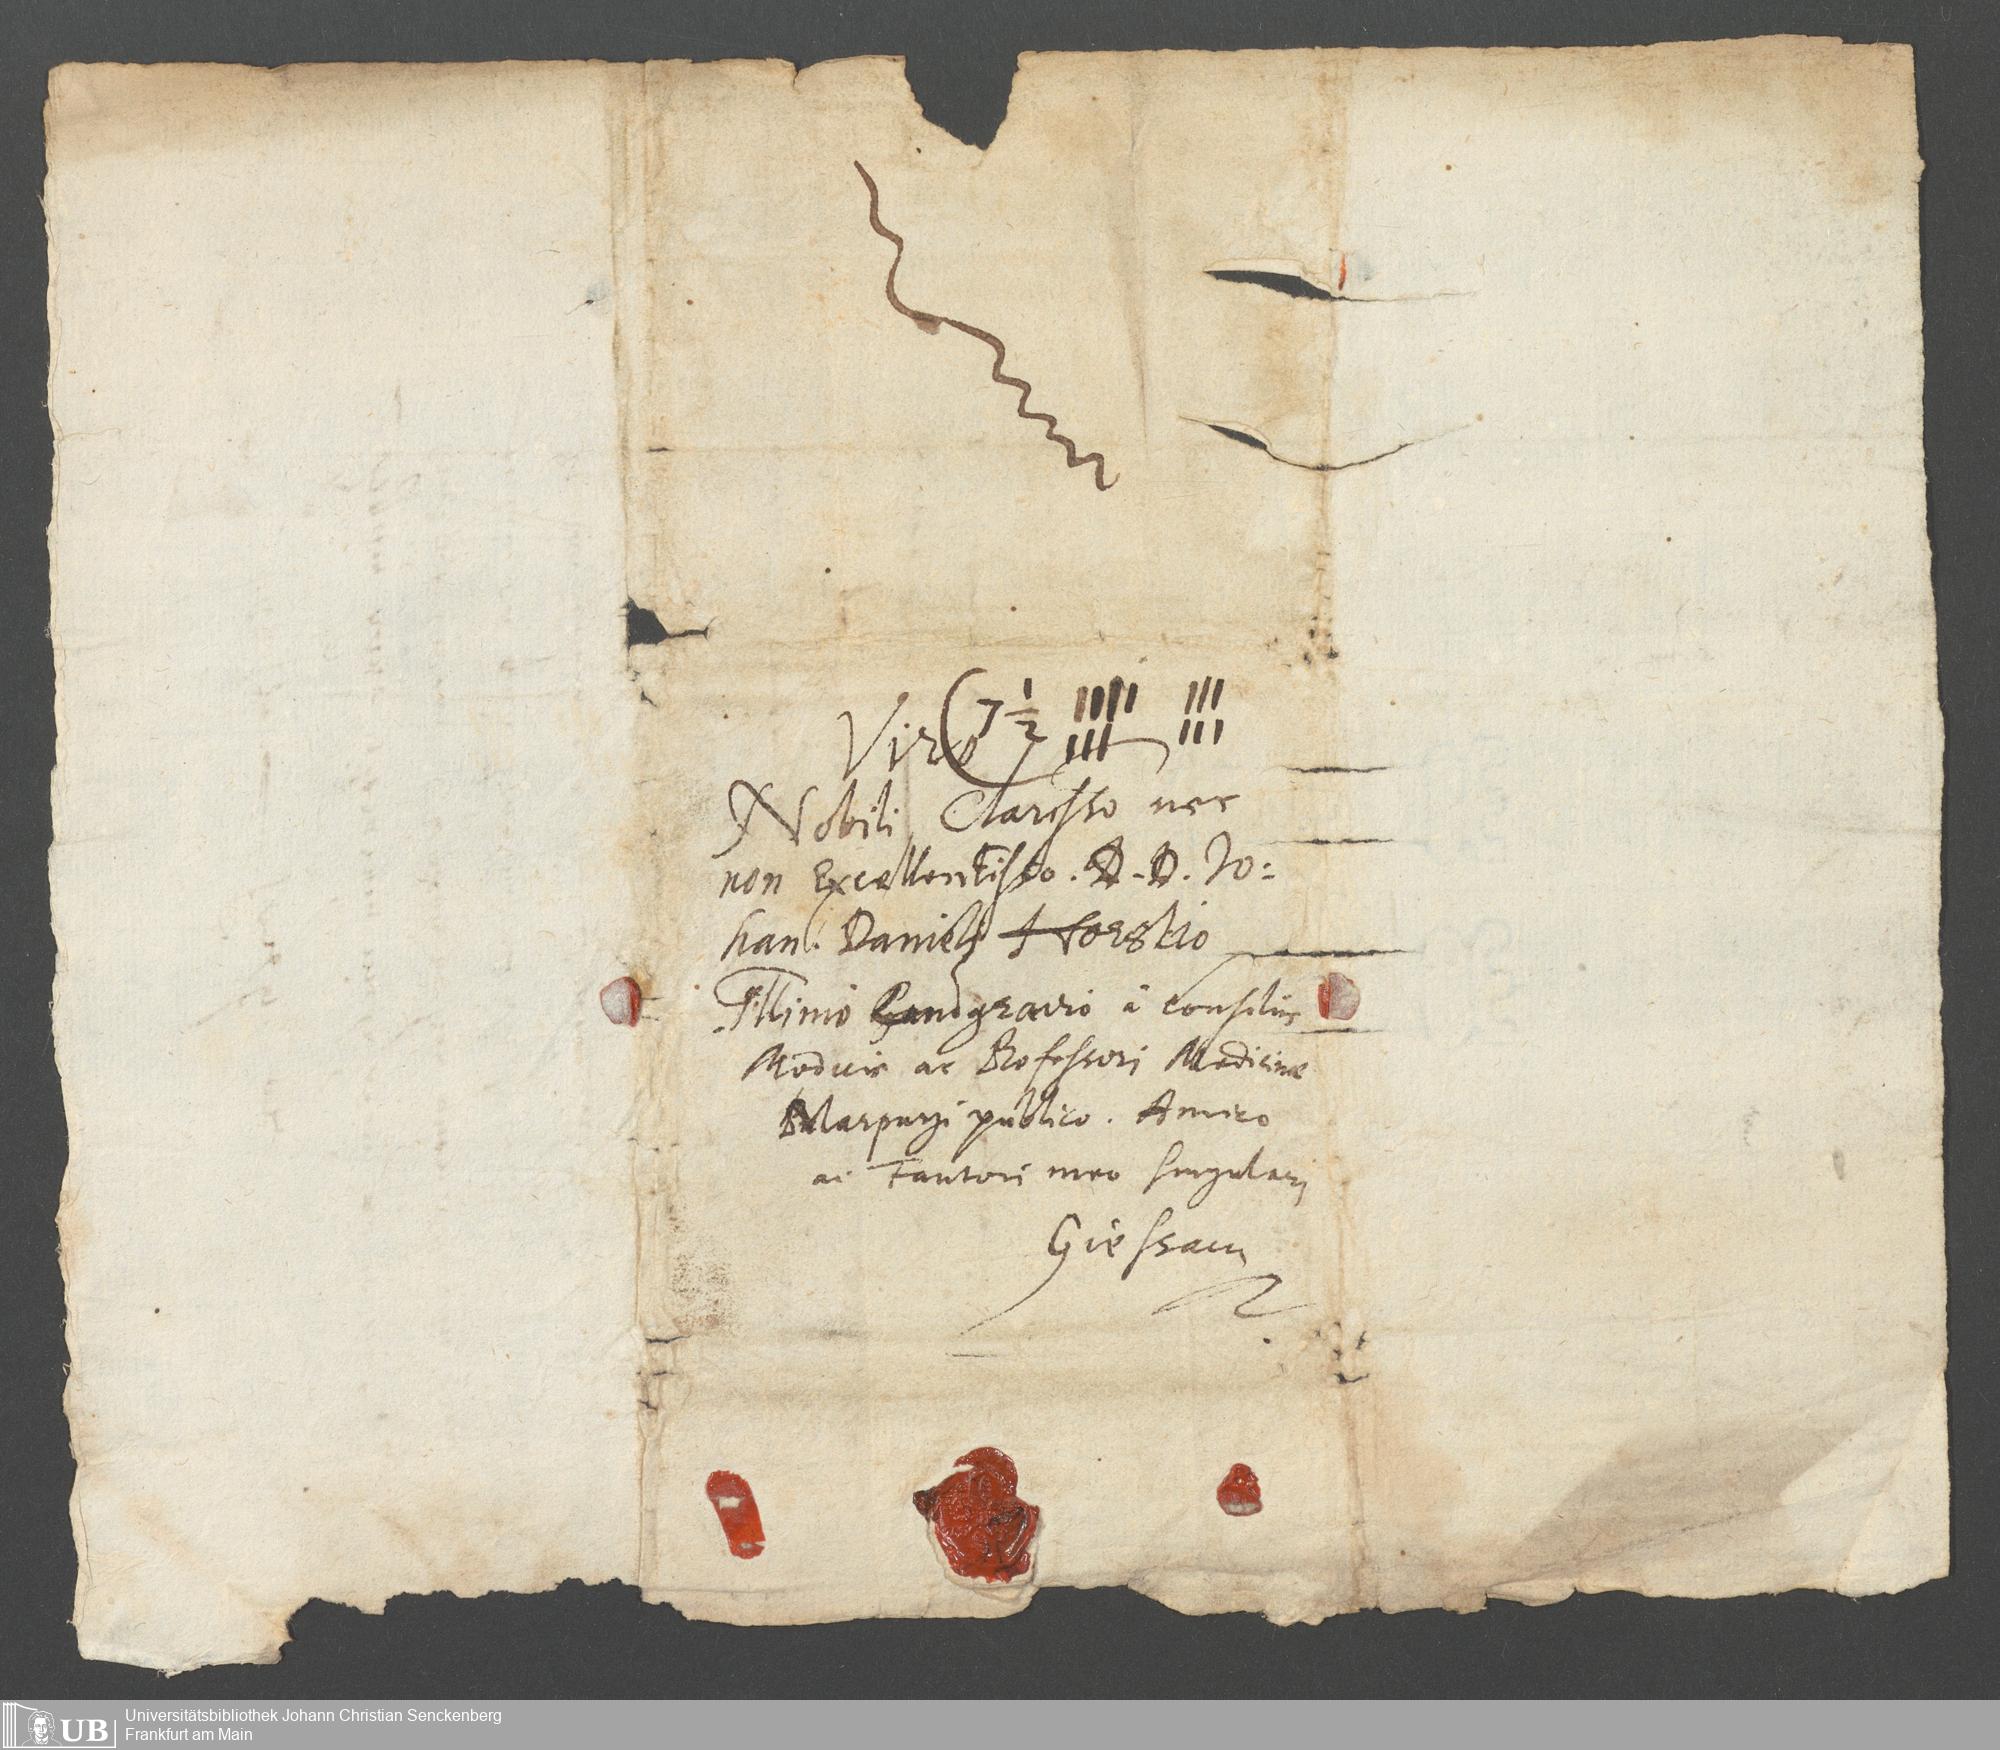 Viro 7 1/2
Nobili Clarisso nec
non Excellentisso. D. D. Jo:
han. Danieli Horstio
Illmo Landgravio à consiliis
Medico ac Professori Medicinæ
Marpurgi publico. Amico
ac Fautori meo singulari
Giessam
Universitätsbibliothek Johann Christian Senckenberg
Frankfurt am Main
UB